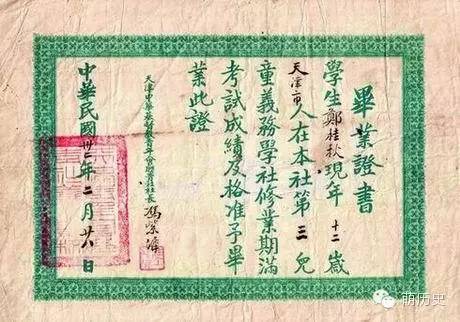 畢業證書
學生鄭桂秋現年十二歲
天津市人在本社第三兒
童義務學社修業期滿
考試成績及格准予畢
業此證
天津中華基督教青年會社長馮紫
中華民國卅二年二月廿八日
萌历史